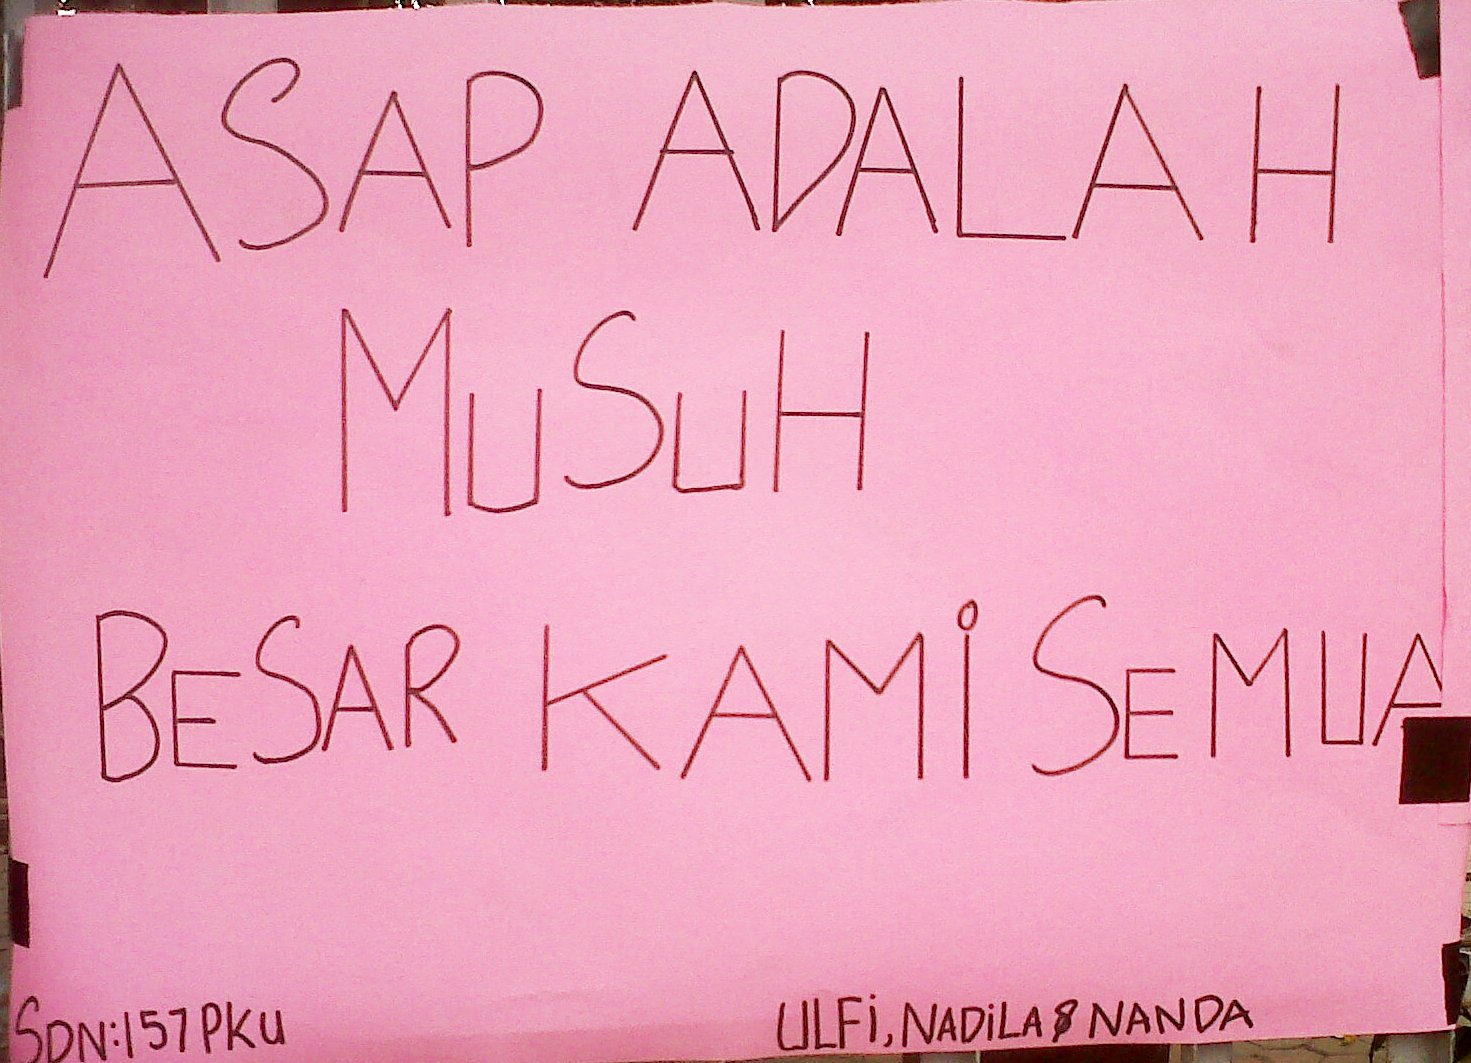 ASAP ADALAH
MUSUH
BESAR KAMi SEMUA
SDN:157 PKU
ULFi, NADiLA & NANDA